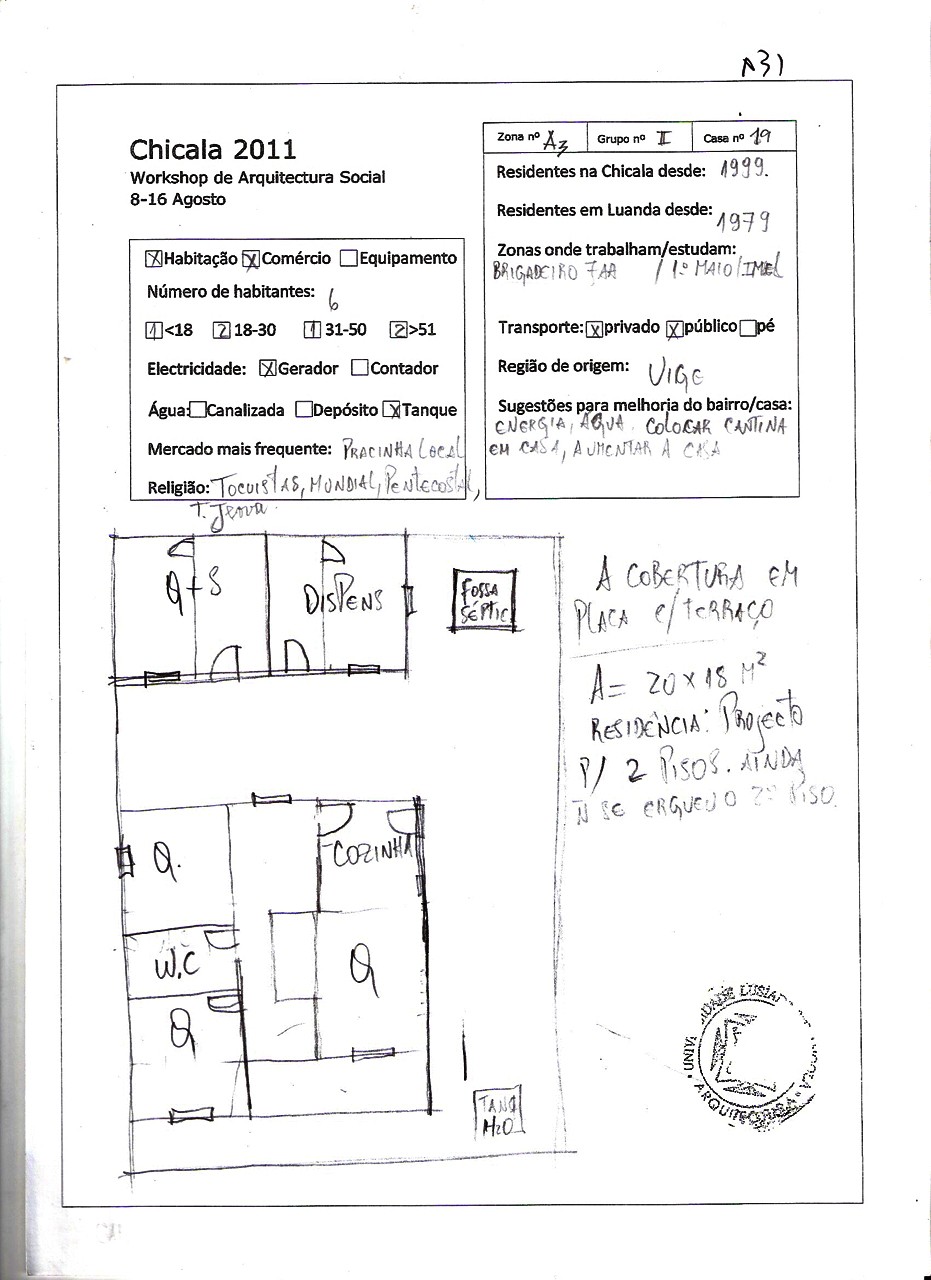 A31
Chicala 2011
Workshop de Arquitectura Social
8-16 Agosto
Zona nº A3 Grupo nº II Casa nº 19
Residentes na Chicala desde: 1999.
Residentes em Luanda desde: 1979
Zonas onde trabalham/estudam:
BRIGADEIRO FAA / 1º MAIO/IMEL
Transporte: X privado X público pé
Região de origem: UIGE
Sugestões para melhoria do bairro/casa:
ENERGIA, ÁGUA. COLOCAR CANTINA
EM CASA, AUMENTAR A CASA
X Habitação X Comércio Equipamento
Número de habitantes: 6
1 <18 2 18-30 1 31-50 2 >51
Electricidade: X Gerador Contador
Água: Canalizada Depósito X Tanque
Mercado mais frequente: PRACINHA LOCAL
Religião: TOCUISTAS, MUNDIAL, PENTECOSTAL,
T. Jeova.
Q+S
DISPENS
FOSSA
SÉPTIC
A COBERTURA EM
PLACA C/TERRAÇO
A= 20x18 M²
RESIDÊNCIA: PROJECTO
P/ 2 PISOS. AINDA
N SE ERGUEU O 2º PISO.
Q.
COZINHA
W.C
Q
Q
TANQ
H2O
ARQUITECTURA